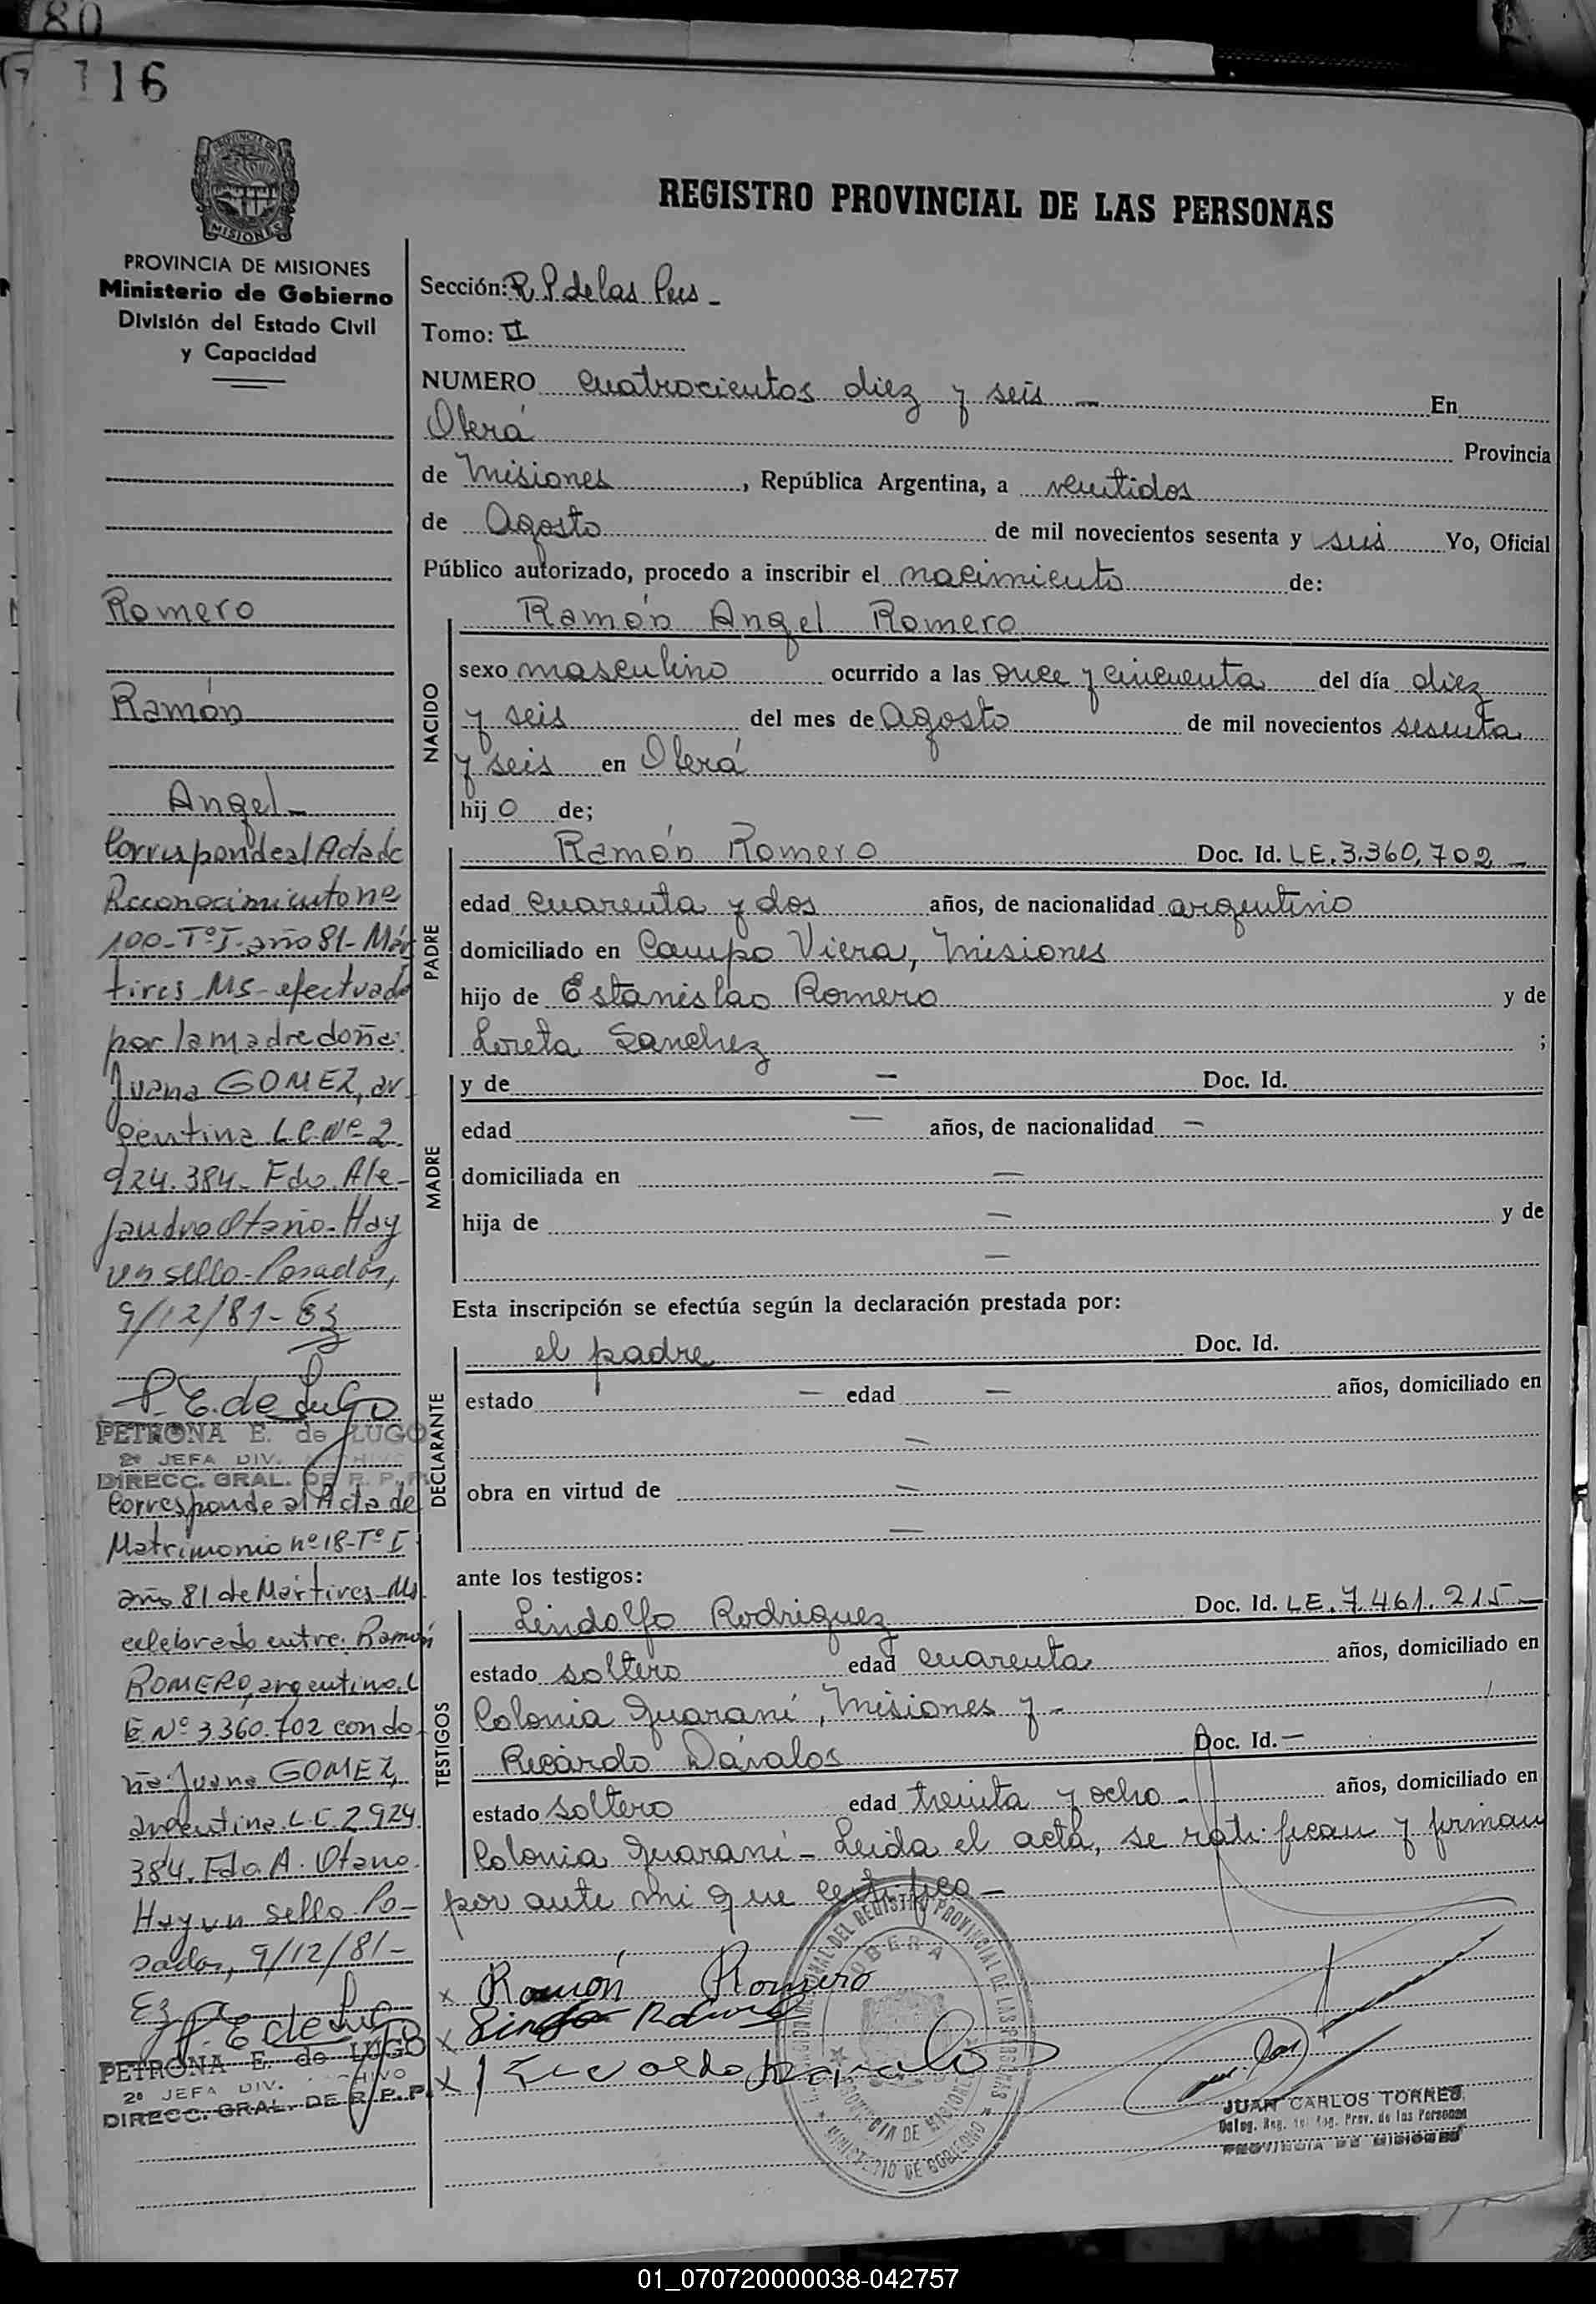 80
116
PROVINCIA DE
MISIONES
PROVINCIA DE MISIONES
Ministerio de Gobierno
División del Estado Civil
y Capacidad
Romero
Ramón
Angel -
Corresponde al Acta de
Reconocimiento nº
100 - Tº I - año 81 - Már
tires - Ms - efectuado
por la madre doña:
Juana GOMEZ, ar
gentina L.C. Nº 2
924.384 - Fdo. Ale-
jandro Otaño - Hay
un sello - Posadas,
9/12/81 -
P. E. de Lugo
PETRONA E. de LUGO
2ª JEFA DIV. ARCHIVO
DIRECC. GRAL. DE R. P. P.
Corresponde al Acta de
Matrimonio nº 18 - Tº I
año 81 de Mártires - Ms
celebrado entre: Ramón
ROMERO, argentino, L
E Nº 3.360.702 con do
ña: Juana GOMEZ,
argentina L.C. 2.924
384. Fdo. A. Otano
Hay un sello Po-
sadas, 9/12/81 -
P. E de Lugo
PETRONA E. de LUGO
2ª JEFA DIV. ARCHIVO
DIRECC. GRAL. DE R. P. P.
REGISTRO PROVINCIAL DE LAS PERSONAS
Sección: R. P. de las Pers -
Tomo: II
NUMERO cuatrocientos diez y seis - En
Oberá Provincia
de Misiones, República Argentina, a veintidos
de Agosto de mil novecientos sesenta y seis Yo, Oficial
Público autorizado, procedo a inscribir el nacimiento de:
NACIDO
Ramón Angel Romero
sexo masculino ocurrido a las once y cincuenta del día diez
y seis del mes de Agosto de mil novecientos sesenta
y seis en Oberá
hijo de;
PADRE
Ramón Romero Doc. Id. L.E. 3.360.702 -
edad cuarenta y dos años, de nacionalidad argentino
domiciliado en Campo Viera, Misiones
hijo de Estanislao Romero y de
Loreta Sanchez ;
MADRE
y de - Doc. Id.
edad - años, de nacionalidad -
domiciliada en -
hija de - y de
-
Esta inscripción se efectúa según la declaración prestada por:
DECLARANTE
el padre Doc. Id.
estado - edad - años, domiciliado en
-
obra en virtud de -
-
ante los testigos:
TESTIGOS
Lindolfo Rodriguez Doc. Id. L.E. 7.461.215 -
estado soltero edad cuarenta años, domiciliado en
Colonia Guaraní, Misiones y -
Ricardo Dávalos Doc. Id. -
estado soltero edad treinta y ocho - años, domiciliado en
Colonia Guaraní - Leida el acta, se ratifican y firman
por ante mi que certifico -
x Ramón Romero
x
x
DEL REGISTRO PROVINCIAL DE LAS PERSONAS
OBERA
PROVINCIA DE MISIONES
MINISTERIO DE GOBIERNO
JUAN CARLOS TORRES
Prov. de las Personas
PROVINCIA DE MISIONES
01_070720000038-042757